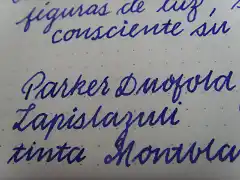 figuras de luz, s
consciente su
Parker Duofold
Lapislazuli
tinta Montbla